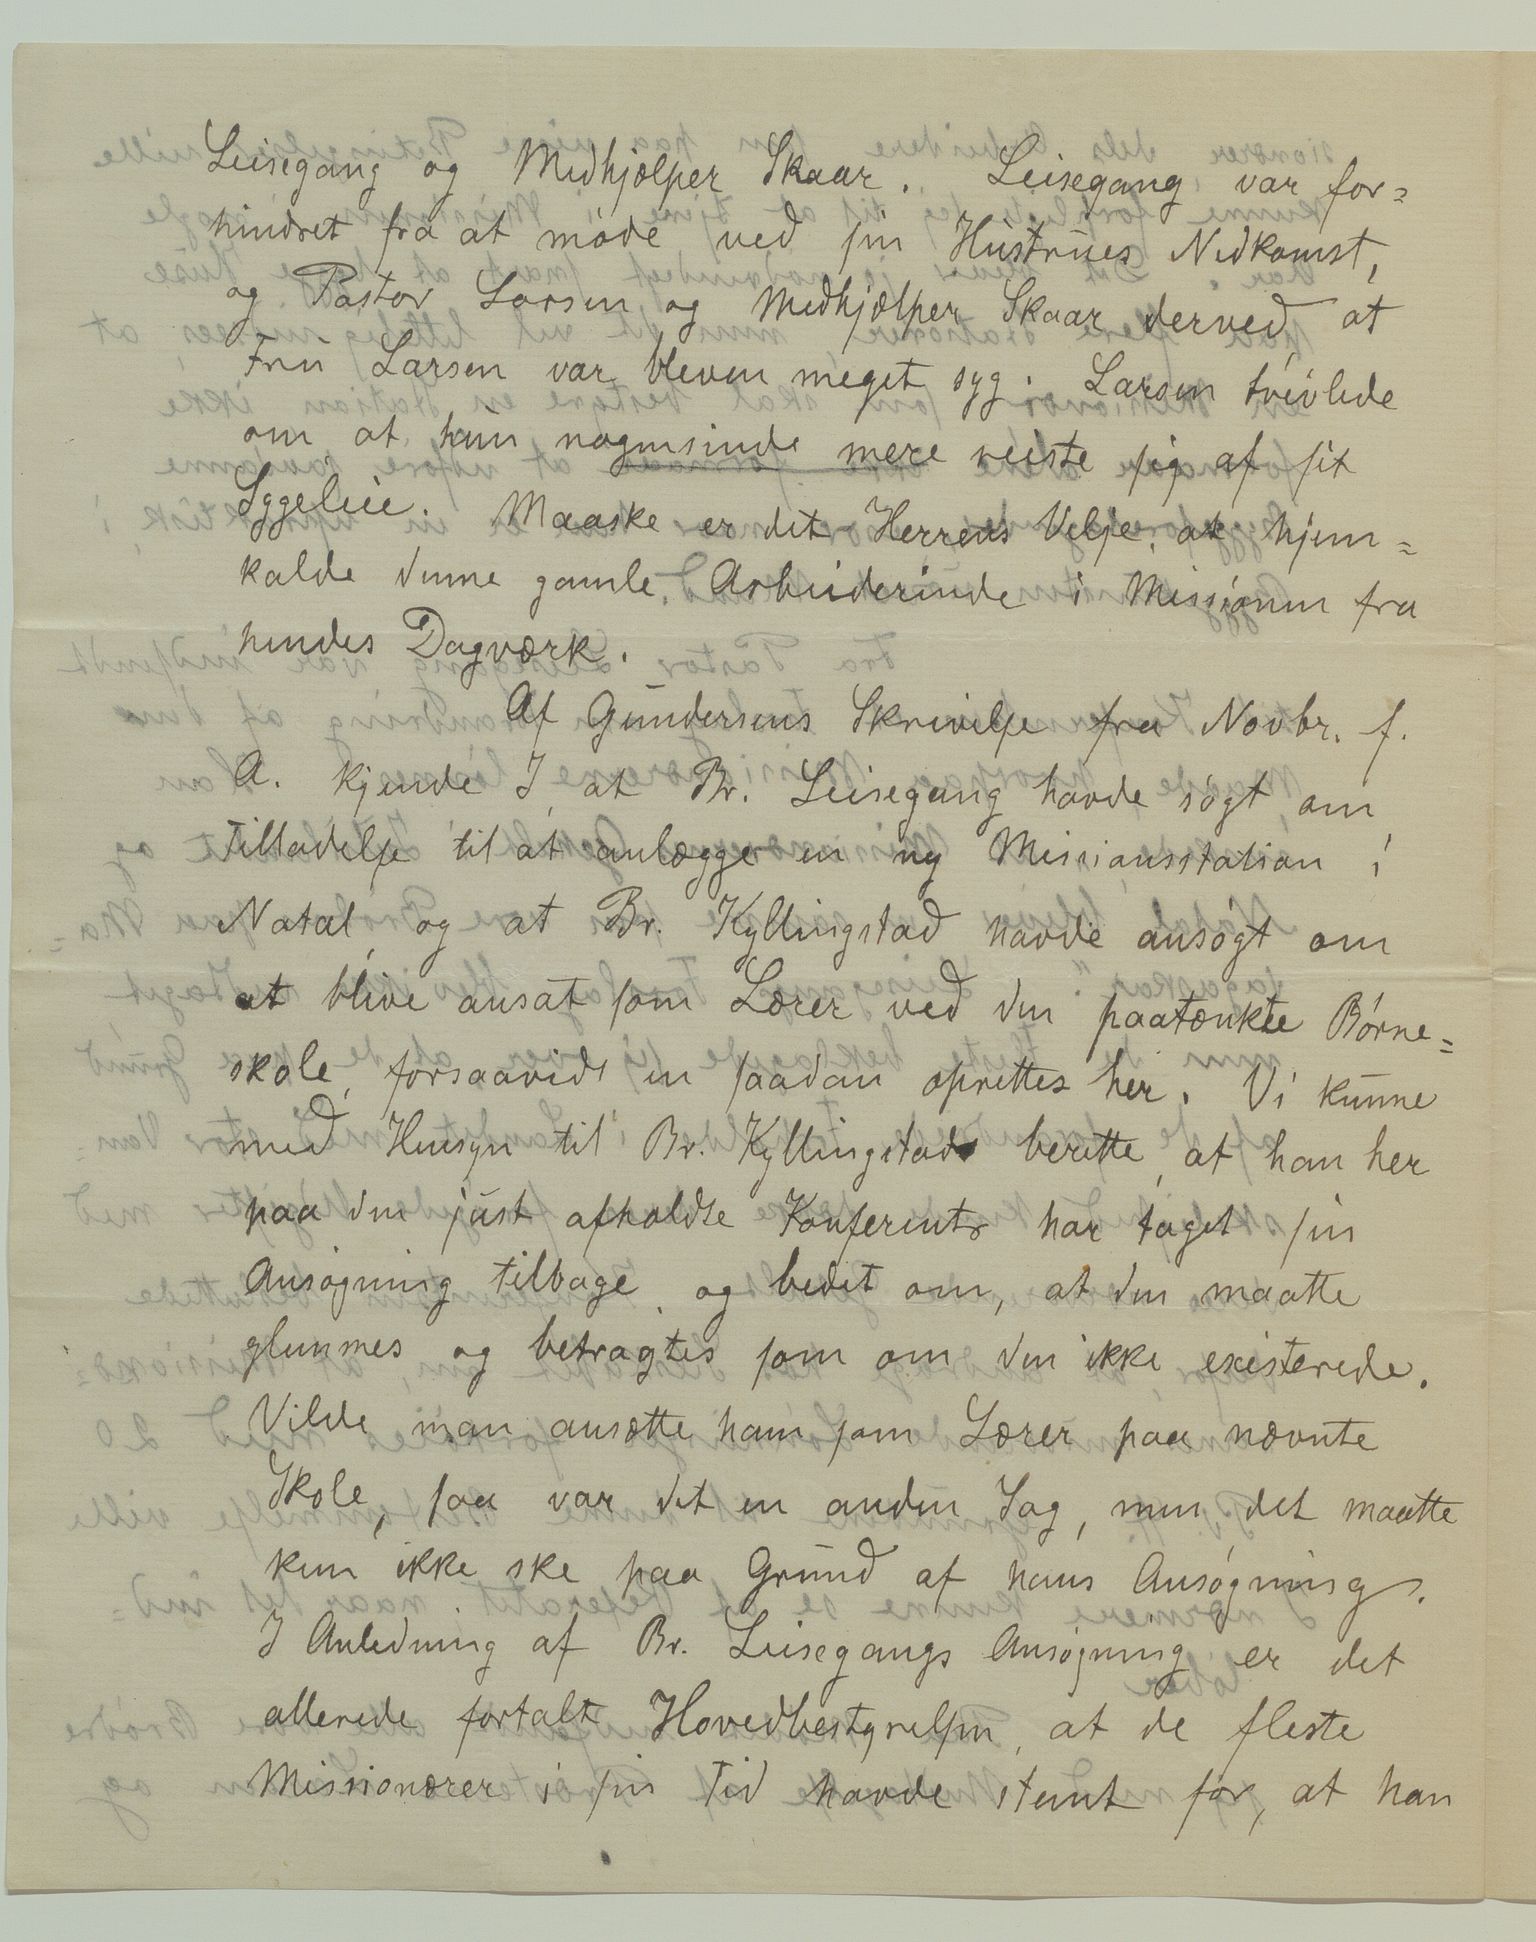 Leisegang og Medhjælper Skaar. Leisegang var for=
hindret fra at møde ved sin Hustrues Nedkomst,
og Pastor Larsen og Medhjælper Skaar derved at
Fru Larsen var bleven meget syg. Larsen tvivlede
om at hun nogensinde mere reiste sig af sit
Sygeleie. Maaske er det Herrens Velje, at hjem=
kalde denne gamle Arbeiderinde i Missionen fra
hendes Dagværk.
Af Gundersens Skrivelse fra Novbr. f.
A. kjende I, at Br. Leisegang havde søgt om
Tilladelse til at anlægge en ny Missionsstation i
Natal, og at Br. Kyllingstad havde ansøgt om
at blive ansat som Lærer ved den paatænkte Børne=
skole, forsaavidt en saadan oprettes her. Vi kunne
med Hensyn til Br. Kyllingstad berette, at han her
paa den just afholdte Konferents har taget sin
Ansøgning tilbage, og bedet om, at den maatte
glemmes og betragtes som om den ikke existerede.
Vilde man ansætte ham som Lærer paa nævnte
Skole, saa var det en anden Sag, men det maatte
kun ikke ske paa Grund af hans Ansøgning.
I Anledning af Br. Leisegangs Ansøgning er det
allerede fortalt Hovedbestyrelsen, at de fleste
Missionærer i sin Tid havde stemt for, at han